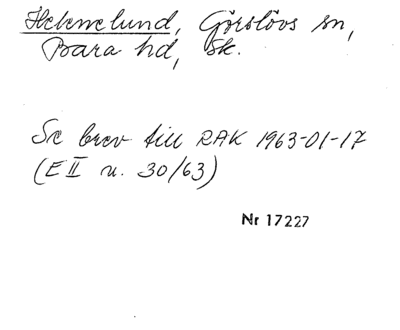 Helenelund, Görslövs sn,
Bara hd, Sk.
Se brev till RAK 1963-01-17
(E II u. 30/63)
Nr 17227